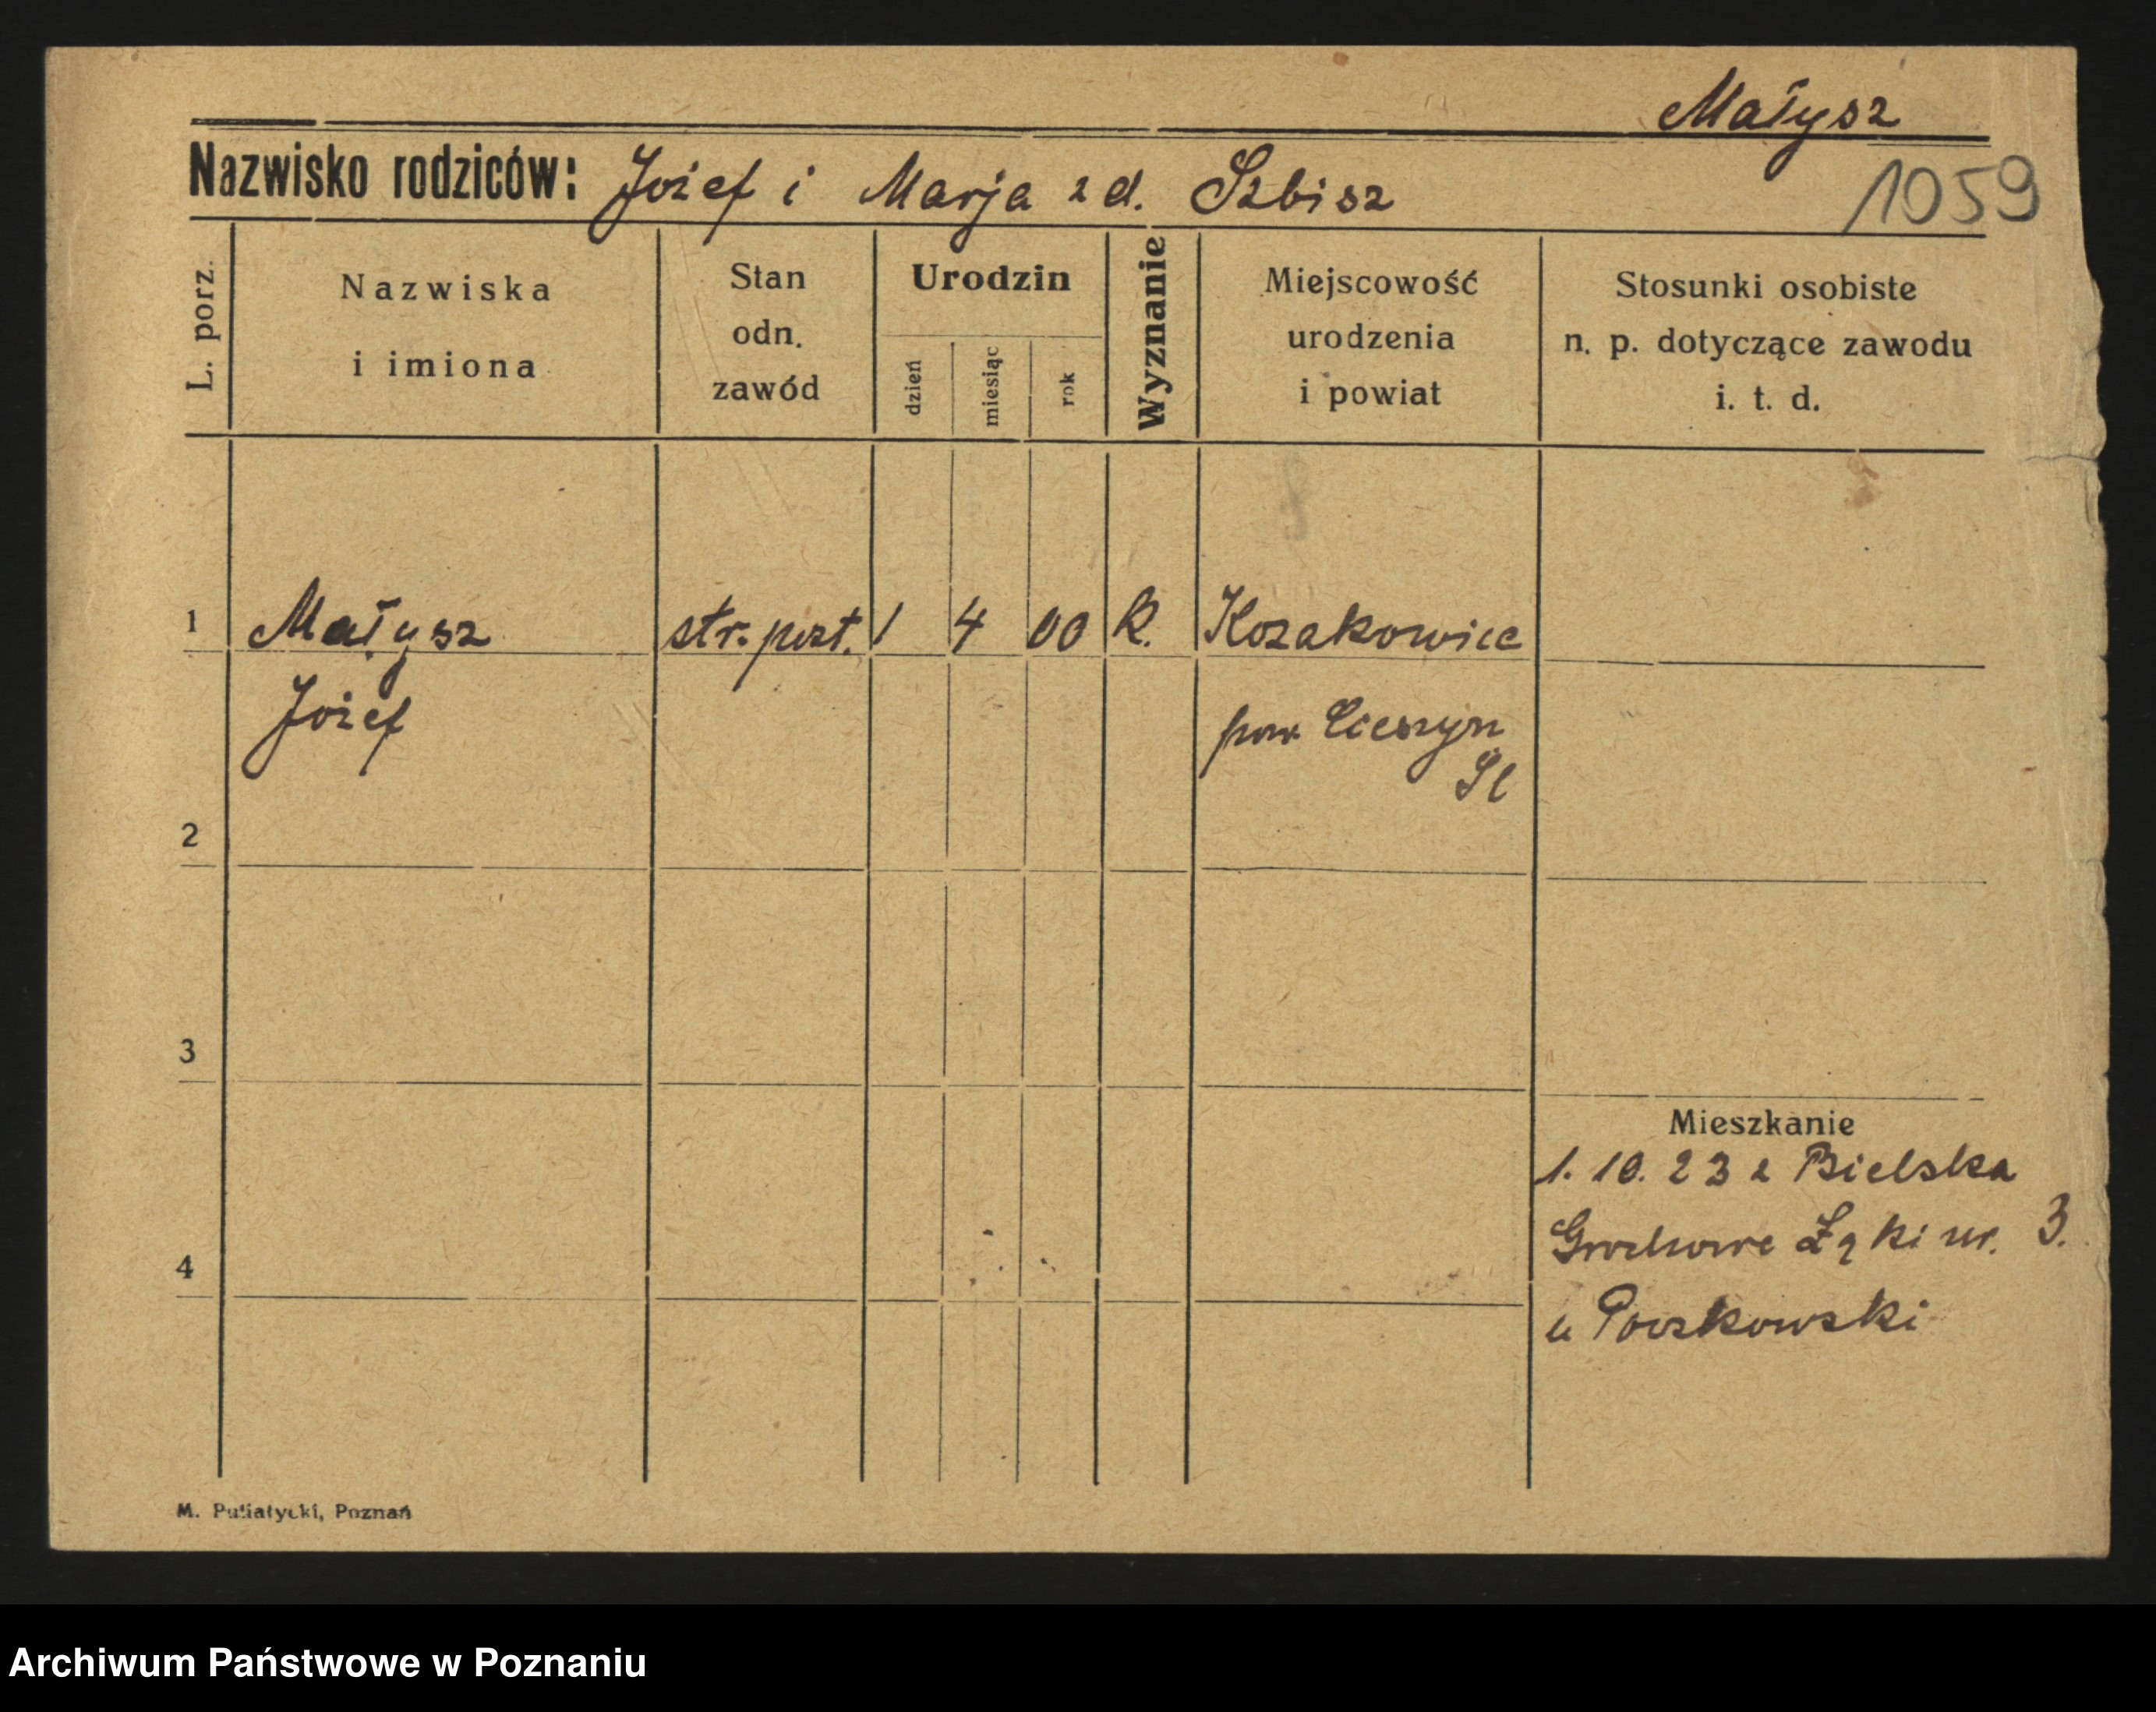 Małysz
Nazwisko rodziców: Józef i Marja z d. Szbisz
1059
L. porz.
Nazwiska
i imiona
Stan
odn.
zawód
Urodzin
dzień
miesiąc
rok
Wyznanie
Miejscowość
urodzenia
i powiat
Stosunki osobiste
n. p. dotyczące zawodu
i. t. d.
1 Małysz str. poszt. 1 4 00 R. Kozakowice
Józef
pow Cieszyn
Sl
2
3
Mieszkanie
1. 10. 23 z Bielska
Grochowe Łąki nr. 3.
4
u
M. Putiatycki, Poznań
Archiwum Państwowe w Poznaniu